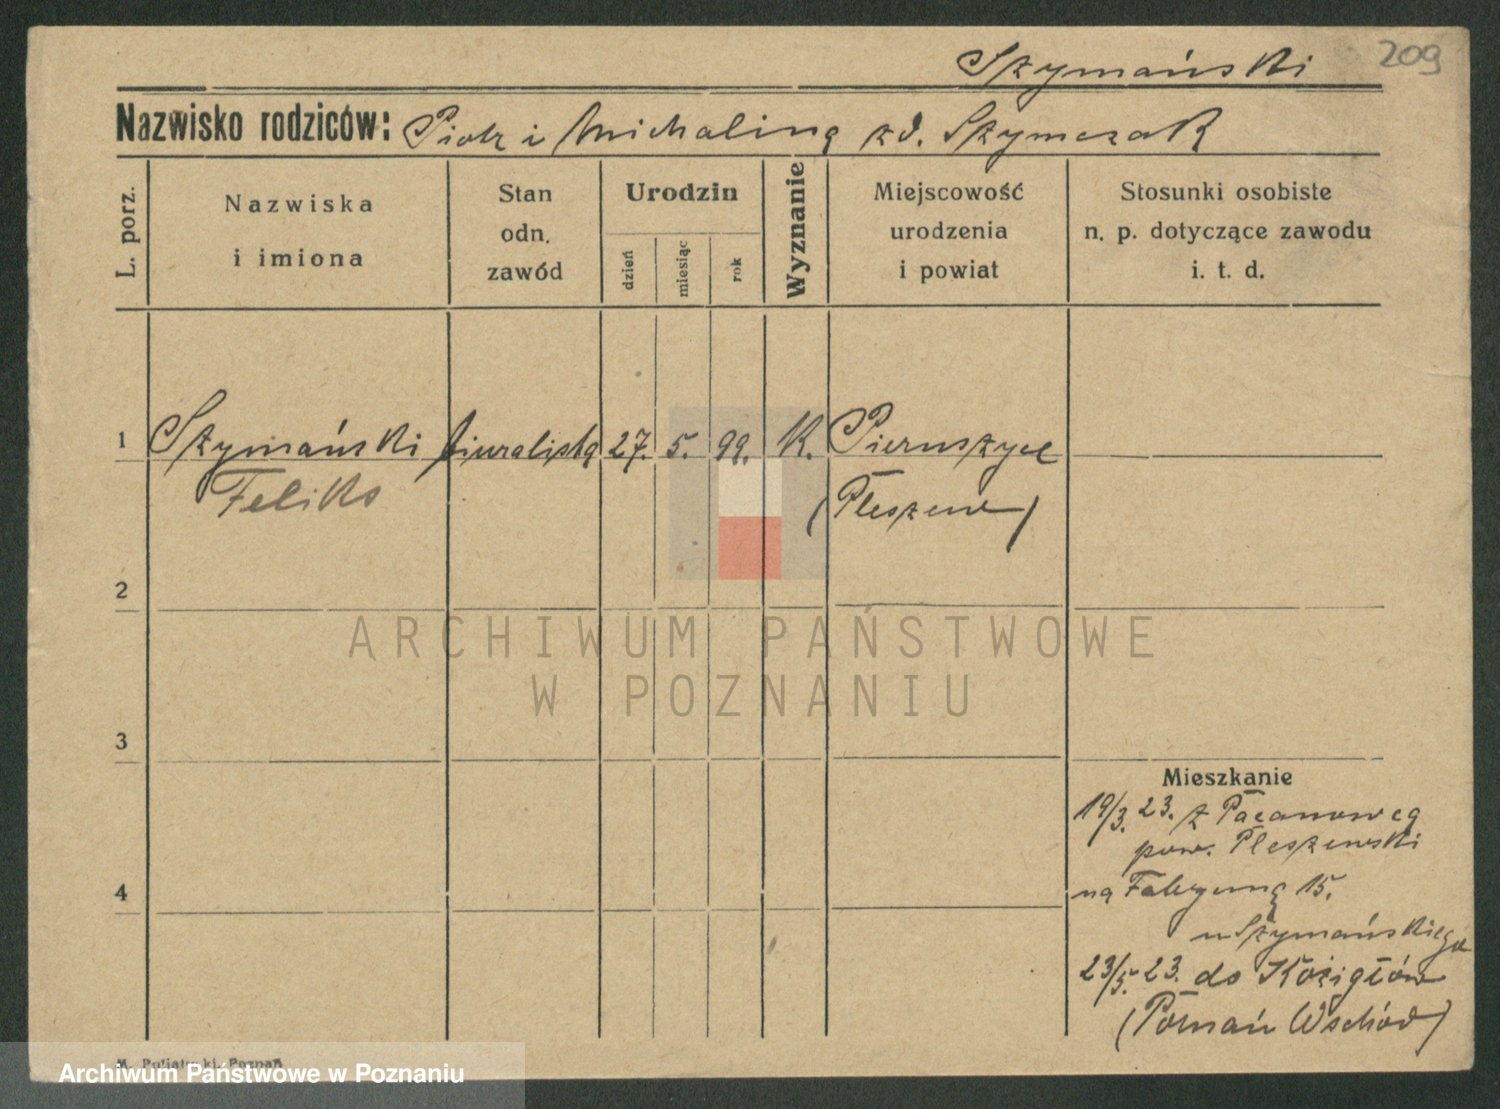 Szymański
209
Nazwisko rodziców: Piotr i Michalina zd. Szymczak
L. porz.
Nazwiska
i imiona
Stan
odn.
zawód
Urodzin
dzień
miesiąc
rok
Wyznanie
Miejscowość
urodzenia
i powiat
Stosunki osobiste
n. p. dotyczące zawodu
i. t. d.
1 Szymański biuralista 27. 5. 99. K. Pieruszyce
Feliks (Pleszew)
2
ARCHIWUM PAŃSTWOWE
W POZNANIU
3
Mieszkanie
19/3. 23. z Pacanowca
pow. Pleszewski
4
na Fabryczną 15.
u Szymańskiego
23/5. 23. do Koziegłów
(Poznań Wschód)
Poznań
Archiwum Państwowe w Poznaniu